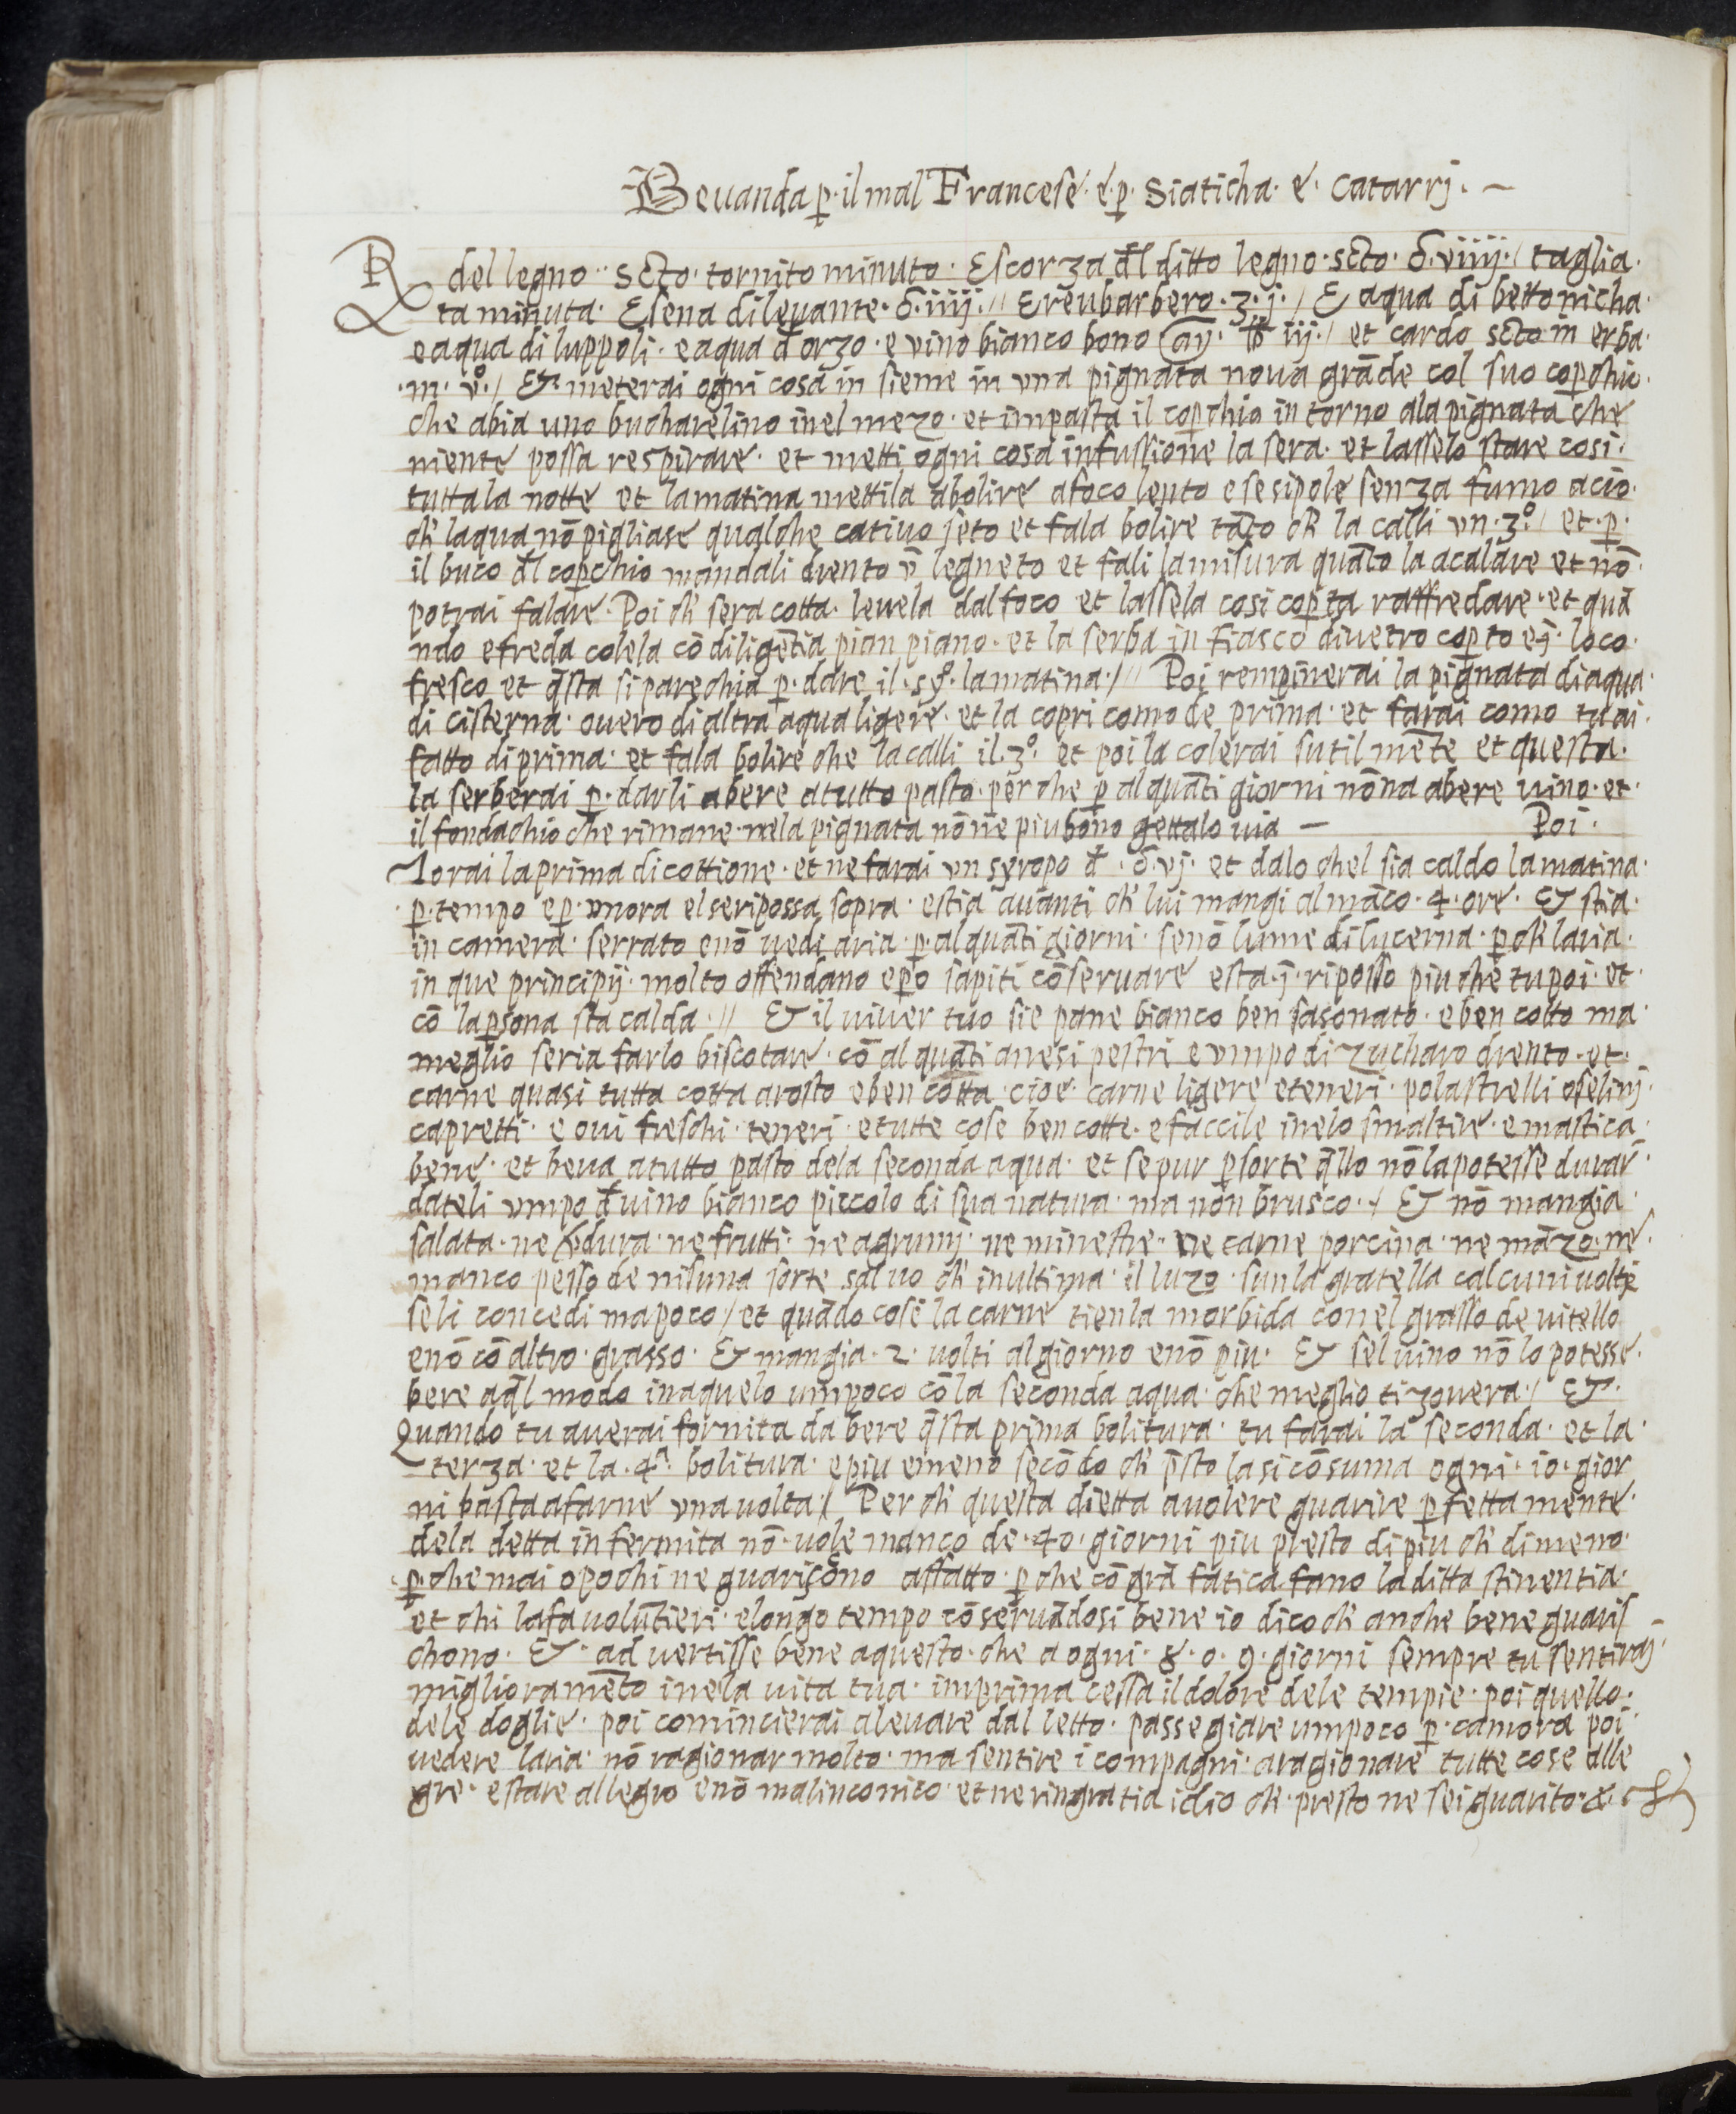 Beuanda p̱. il mal Francese. e p̱. Siaticha. e. Catarrj. ~
℞ del legno ·· Scto. tornito minuto. E scorza d̄l ditto legno. scto. δ. viiij. / taglia.
ta minuta. E sena di leuante. δ. iiij. // E reubarbero. ʒ. j. / E aqua di bettonicha
e aqua di luppoli. e aqua d̄ orzo. e vino bianco bono ay. ℔ iij. / et cardo scto in erba.
.m. v°. / Et meterai ogni cosa in sieme in vna pignata noua grāde col suo cop̱chio.
che abia uno bucharelino inel mezo. et impasta il cop̱chio in torno ala pignata che
niente possa respirare. et metti ogni cosa infussione la sera. et lasselo stare cosi.
tutta la notte et la matina mettila abolire a foco lento e se si pole senza fumo acio.
ch' laqua nō pigliase qualche catiuo jeto et fala bolire tāto ch' la calli vn. 3°. / et. p̱.
il buco d̄l cop̱chio mandali drento v̄ legneto et fali la misura quāto la a calare et nō
potrai falare. Poi ch' sera cotta. leuela dal foco et lassela cosi cop̱ta raffredare. et quā
ndo e freda colela cō diligētia pian piano. et la serba in fiasco di uetro cop̱to e ī. loco.
fresco et q̄sta si parechia p̱. dare il. sy°. la matina. // Poi rempinerai la pignata di aqua.
di cisterna. ouero di altra aqua ligere. et la copri como de prima. et farai como tu ai.
fatto di prima. et fala bolire che la calli il. 3°. et poi la colerai sutil mēte et questa.
la serberai p̱. darli abere a tutto pasto. per che p̱ al quāti giorni nō na abere uino. et.
il fondachio che rimane. nela pignata nō n'e piu bono gettalo uia — Poi.
Torai la prima dicottione. et ne farai vn syropo d̄. δ. vj. et dalo chel sia caldo la matina.
p̱. tempo e p̱. vnora el se ripossa sopra. e stia auanti ch' lui mangi al māco. 4. ore. E stia.
in camera. serrato e nō uedi aria. p̱. al quāti giorni. se nō lume di lucerna. p̱ ch' laria.
in que principij. molto offendano e p̱o sapiti cōseruare e sta. ī. riposso piu che tu poi. et.
cō la p̱sona sta calda. // E il uiuer tuo sie pane bianco ben sasonato. e ben cotto ma
meglio seria farlo biscotare. cō al quāti anesi pestri e vmpo di zucharo drento. et.
carne quasi tutta cotta arosto e ben cotta. cioe. carne ligere e teneri. polastrelli oselinj.
capretti. e oui freschi. teneri. e tutte cose ben cotte. e faccile inelo smaltire. e mastica.
bene. et beua a tutto pasto dela seconda aqua. et se pur p̱ sorte q̄llo nō la potesse durar.
dateli vmpo d̄ uino bianco piccolo di sua natura. ma non brusco. / E nō mangia
salata. ne v̱dura. ne frutti. ne agrumj. ne minestre. ne carne porcina. ne māzo. ne.
manco pesso de nisuna sorte saluo ch' in ultima. il luzo. sun la gratella calcuni uolte
se li concedi ma poco / et quādo cose la carne tienla morbida con el grasso de uitello
e nō cō altro. grasso. E mangia. 2. uolti al giorno e nō piu. E sel uino nō lo potesse.
bere aq̄l modo inaquelo umpoco cō la seconda aqua. che meglio ti zouera. / Et.
Quando tu auerai fornita da bere q̄sta prima bolitura. tu farai la seconda. et la.
terza. et la. 4ª. bolitura. e piu e meno secōdo ch' p̄sto la si cōsuma ogni. 10. gior
ni basta afarne vna uolta. / Per ch' questa dietta a uolere guarire p̱fetta mente.
dela detta infermita nō. uole manco de. 40. giorni piu presto di piu ch' di meno.
p̱. che mai o pochi ne guarisc̄ono affatto. p̱ che cō grā fatica fano la ditta stinentia.
et chi la fa uolūtieri. e longo tempo cōseruādosi bene io dico ch' anche bene guaris
chono. Et. ad uertisse bene a questo. che a ogni. 8. o. 9. giorni sempre tu sentiraj
miglioramēto inela uita tua. imprima cessa il dolore dele tempie. poi quello.
dele doglie. poi comincierai a leuare dal letto. passegiare umpoco p̱. camora poi
uedere laria. nō ragionar molto. ma sentire i compagni. a ragionare tutte cose alle
gre. e stare allegro e nō malinconico. et ne ringratia idio ch' presto ne sei guarito. &.